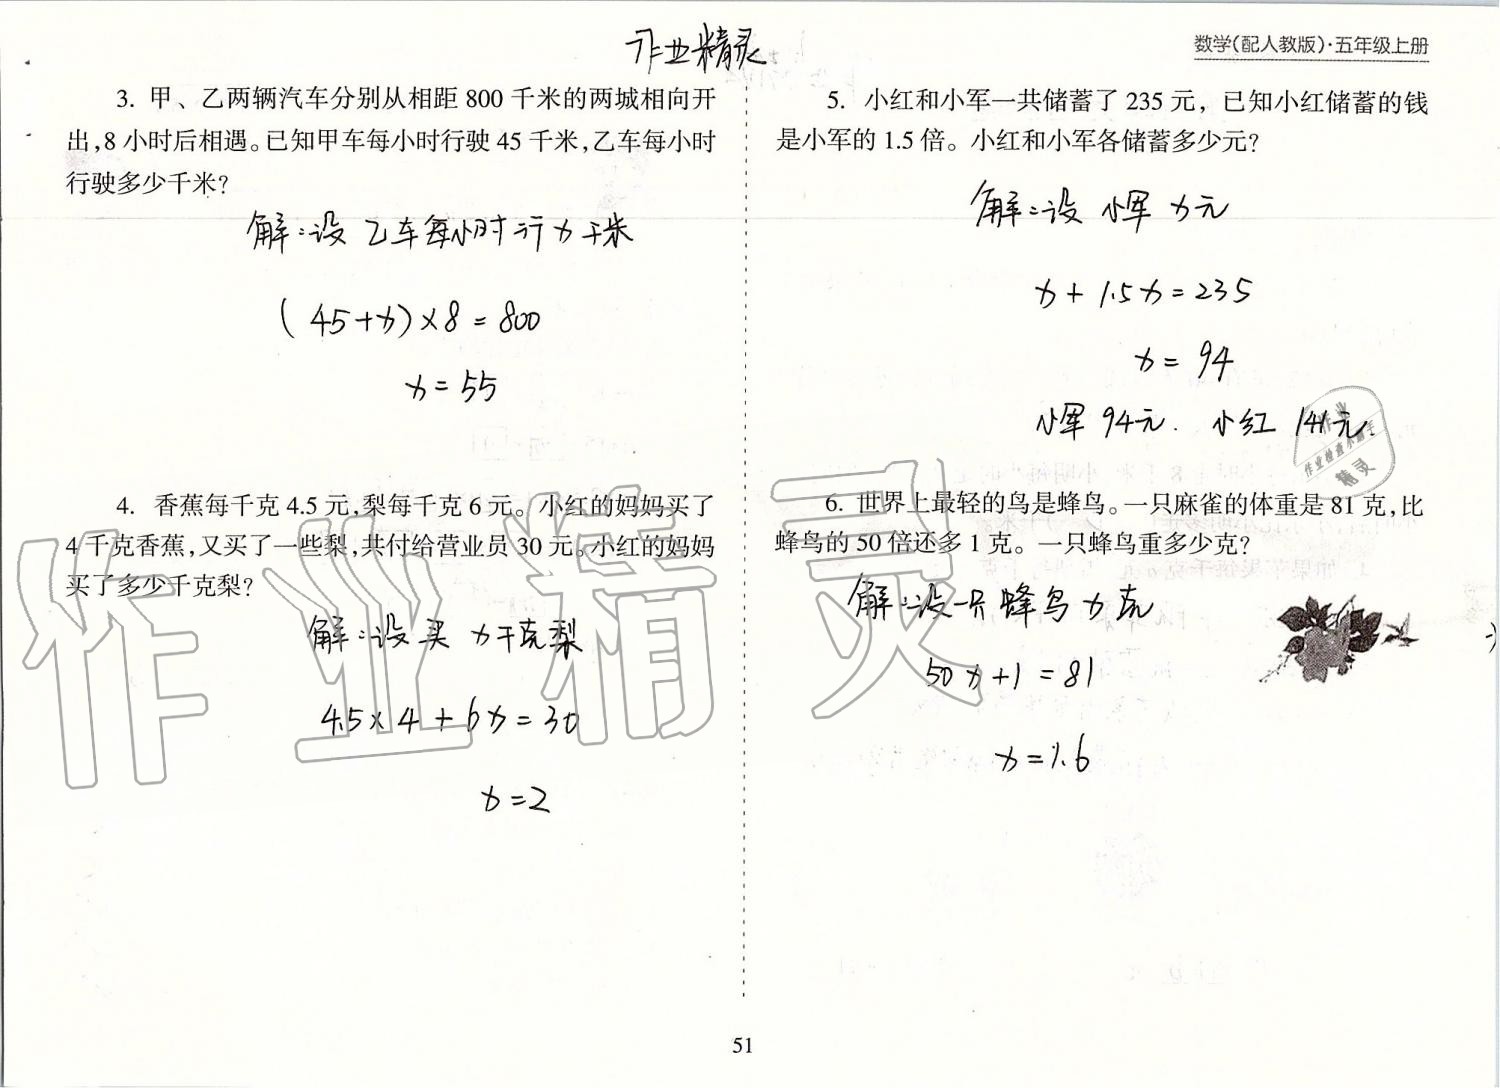 作业精灵
数学(配人教版)·五年级上册
3. 甲、乙两辆汽车分别从相距 800 千米的两城相向开
出,8 小时后相遇。已知甲车每小时行驶 45 千米,乙车每小时
行驶多少千米?
解:设 乙车每小时行 x 千米
(45+x)×8=800
x=55
4. 香蕉每千克 4.5 元,梨每千克 6 元。小红的妈妈买了
4 千克香蕉,又买了一些梨,共付给营业员 30 元。小红的妈妈
买了多少千克梨?
解:设买 x千克梨
4.5×4+6x=30
x=2
5. 小红和小军一共储蓄了 235 元，已知小红储蓄的钱
是小军的 1.5 倍。小红和小军各储蓄多少元?
解:设 小军 x元
x+1.5x=235
x=94
小军 94元. 小红 141元.
6. 世界上最轻的鸟是蜂鸟。一只麻雀的体重是 81 克,比
蜂鸟的 50 倍还多 1 克。一只蜂鸟重多少克?
解:设一只蜂鸟 x克
50x+1=81
x=1.6
作业
作业检查小助手
精灵
作业精灵
51